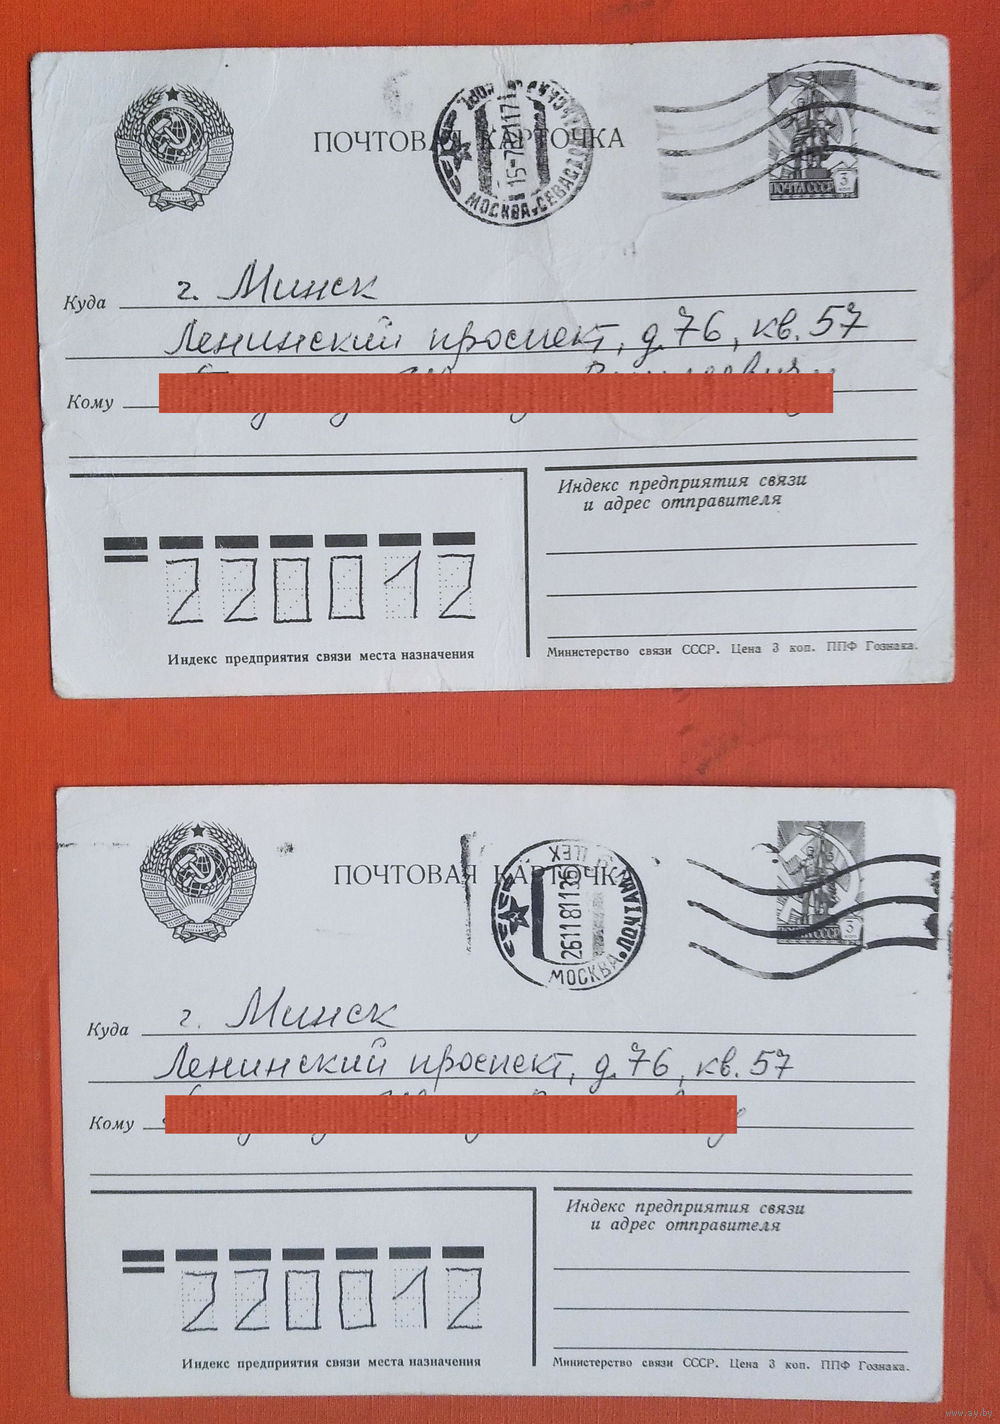 ПОЧТОВАЯ КАРТОЧКА
МОСКВА
ПОЧТА СССР 3 коп
Куда г. Минск
Ленинский проспект, д. 76, кв. 57
Кому
Индекс предприятия связи
и адрес отправителя
220012
Индекс предприятия связи места назначения
Министерство связи СССР. Цена 3 коп. ППФ Гознака.
ПОЧТОВАЯ КАРТОЧКА
261181136
МОСКВА
ПОЧТА СССР 3 коп
Куда г. Минск
Ленинский проспект, д. 76, кв. 57
Кому
Индекс предприятия связи
и адрес отправителя
220012
Индекс предприятия связи места назначения
Министерство связи СССР. Цена 3 коп. ППФ Гознака.
www.ay.by